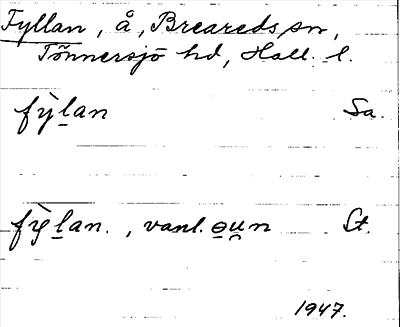 Fyllan, å, Breareds sn,
Tönnersjö hd, Hall. l.
fỳl̲an Sa.
fỳl̲an. , vanl. o̲u̲n St.
1947.